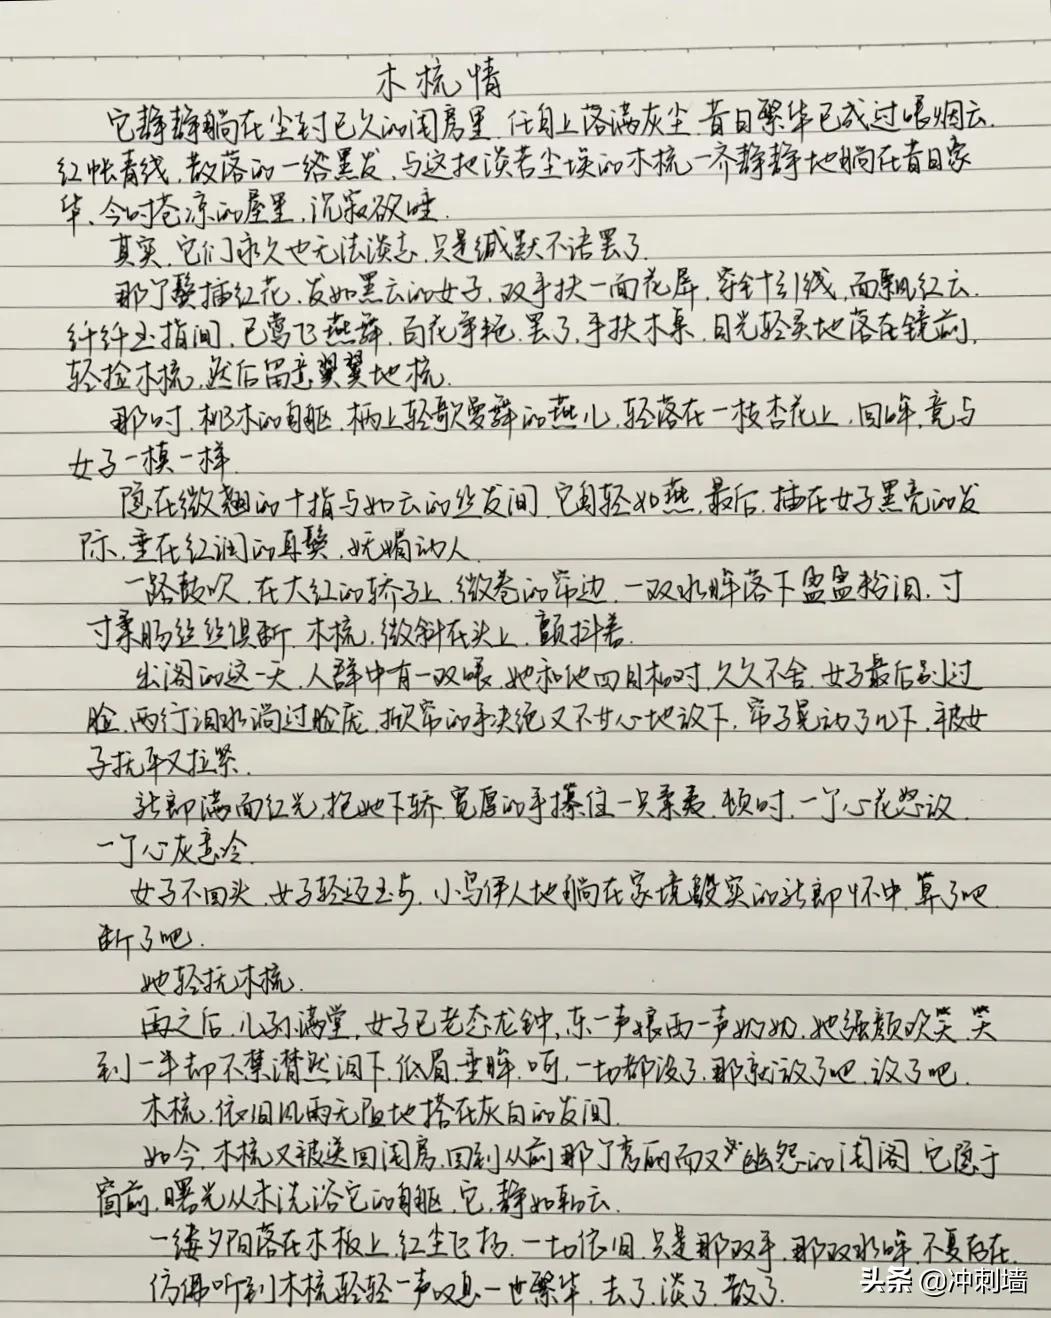 木梳情
它静静躺在尘封已久的闺房里.任身上落满灰尘.昔日繁华已成过眼烟云.
红帐青线.散落的一绺黑发.与这把淡若尘埃的木梳一齐静静地躺在昔日家
华、今时苍凉的屋里,沉寂欲睡.
其实.它们永久也无法淡忘.只是缄默不语罢了.
那个鬓插红花.发如黑云的女子.双手扶一面花屏.穿针引线,面飘红云.
纤纤玉指间.已莺飞燕舞.百花争艳.罢了.手扶木桌.目光轻灵地落在镜前,
轻捡木梳.然后留意翼翼地梳.
那时.桃木的身躯.柄上轻歌曼舞的燕儿.轻落在一枝杏花上.回眸.竟与
女子一模一样.
隐在微翘的十指与如云的丝发间.它身轻如燕.最后.插在女子黑亮的发
际.垂在红润的耳鬓.妩媚动人.
一路鼓吹.在大红的轿子上.微卷的帘边.一双水眸落下盈盈粉泪.寸
寸柔肠丝丝俱断.木梳.微斜在头上.颤抖着.
出阁的这一天.人群中有一双眼.她和他四目相对.久久不舍.女子最后别过
脸.两行泪水淌过脸庞.掀帘的手决绝又不甘心地放下.帘子晃动了几下.被女
子抚平又拉紧.
新郎满面红光.抱她下轿.宽厚的手攥住一只柔荑.顿时.一个心花怒放.
一个心灰意冷.
女子不回头.女子轻迈玉步.小鸟伊人地躺在家境殷实的新郎怀中.算了吧.
断了吧.
她轻抚木梳.
再之后.儿孙满堂.女子已老态龙钟,东一声娘西一声奶奶.她强颜欢笑.笑
到一半却不禁潸然泪下.低眉.垂眸.呵.一切都没了.那就放了吧.放了吧.
木梳.依旧风雨无阻地搭在灰白的发间.
如今.木梳又被送回闺房.回到从前那个秀丽而又幽怨的闺阁.它隐于
窗前.曙光从未洗浴它的身躯.它.静如轻云.
一缕夕阳落在木板上.红尘飞扬.一切依旧.只是那双手.那双水眸.不复存在.
仿佛听到木梳轻轻一声叹息.一世繁华.去了.淡了.散了.
头条 @冲刺墙